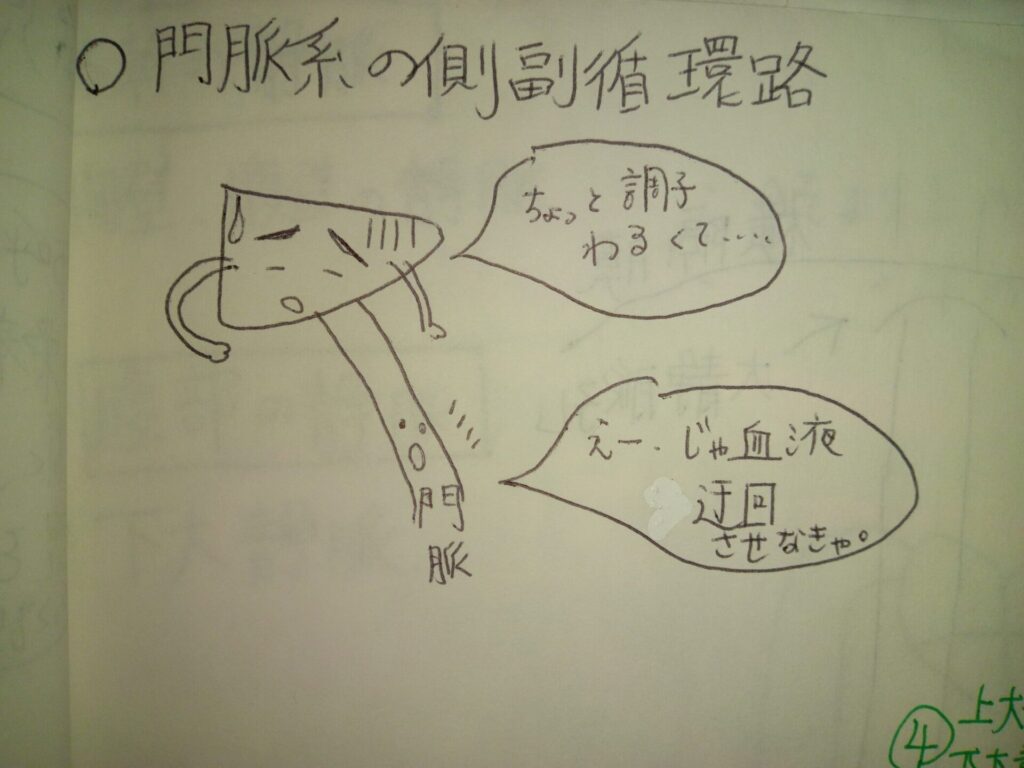 ○ 門脈系の側副循環路
ちょっと調子
わるくて・・・・
えー、じゃ血液
迂回
させなきゃ。
門
脈
④ 上大
下大静